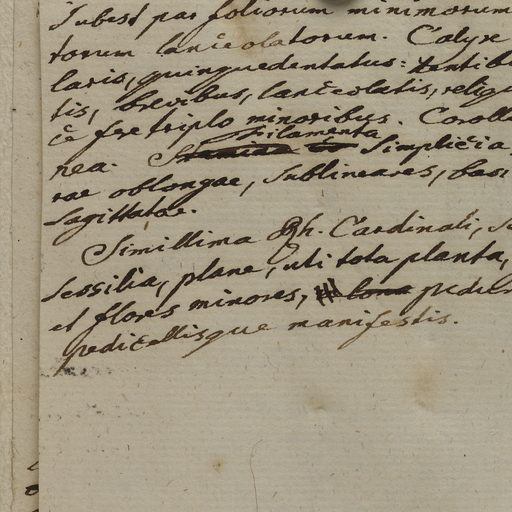 Subest par foliorum minimorum
torum lanceolatorum. Calyx
laris, quinquedentatus: dentibu
tis, brevibus, lanceolatis, reliqu
ce fere triplo minoribus. Coroll
Filamenta
nea. Stamina simplicia,
rae oblongae, sublineares, basi
sagittatae.
Simillima Gh. Cardinali, s
sessilia, plane, uti tota planta,
et flores minores, pedun
pedicellisque manifestis.